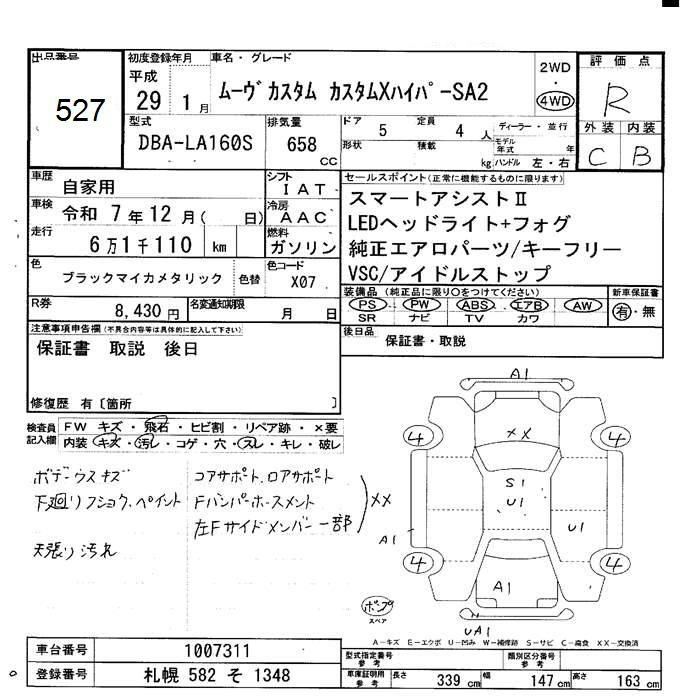 出品番号
527
初度登録年月
平成
29 1月
車名・グレード
ムーヴカスタム カスタムXハイパーSA2
2WD
・
4WD
評価点
R
外装 内装
C B
型式
DBA-LA160S
排気量
658
CC
ドア 5 定員 4人
形状 積載 kg
ディーラー・並行
モデル年式 年
ハンドル 左・右
車歴 自家用
シフト IAT
車検 令和 7年12月( 日)
冷房 AAC
走行 6万1千110 km
燃料 ガソリン
色 ブラックマイカメタリック 色替
色コード X07
R券 8,430円
名変通知期限 月 日
セールスポイント(正常に機能するものに限ります)
スマートアシストⅡ
LEDヘッドライト+フォグ
純正エアロパーツ/キーフリー
VSC/アイドルストップ
装備品(純正品に限り○をつけてください)
PS PW ABS エアB AW
SR ナビ TV カワ
新車保証書
有・無
後日品
保証書・取説
注意事項申告欄(不具合内容等は具体的に記入して下さい)
保証書 取説 後日
修復歴 有〔箇所 〕
検査員記入欄
FW キズ・飛石・ヒビ割・リペア跡・×要
内装 キズ・汚レ・コゲ・穴・スレ・キレ・破レ
ボデーウスキズ
下廻りフショク、ペイント
天張り汚れ
コアサポート、ロアサポート
Fバンパーホースメント
左Fサイドメンバー一部
XX
A1
XX
4 4
S1
U1
A1
U1
4 4
A1
UA1
ポンプ
スペア
A-キズ E-エクボ U-凹み W-補修跡 S-サビ C-腐食 XX-交換済
車台番号 1007311
登録番号 札幌 582 そ 1348
型式指定番号
参考
類別区分番号
参考
車庫証明用
参考
長さ 339cm 幅 147cm 高さ 163cm